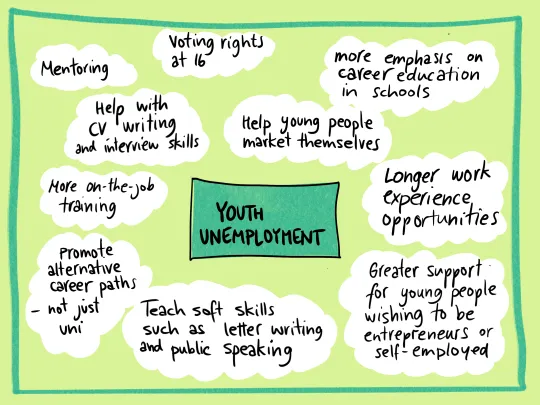 Mentoring
Voting rights
at 16
more emphasis on
career education
in schools
Help with
CV writing
and interview skills
Help young people
market themselves
More on-the-job
training
YOUTH
UNEMPLOYMENT
Longer work
experience
opportunities
Promote
alternative
career paths
- not just
uni
Teach soft skills
such as letter writing
and public speaking
Greater support
for young people
wishing to be
entrepreneurs or
self-employed